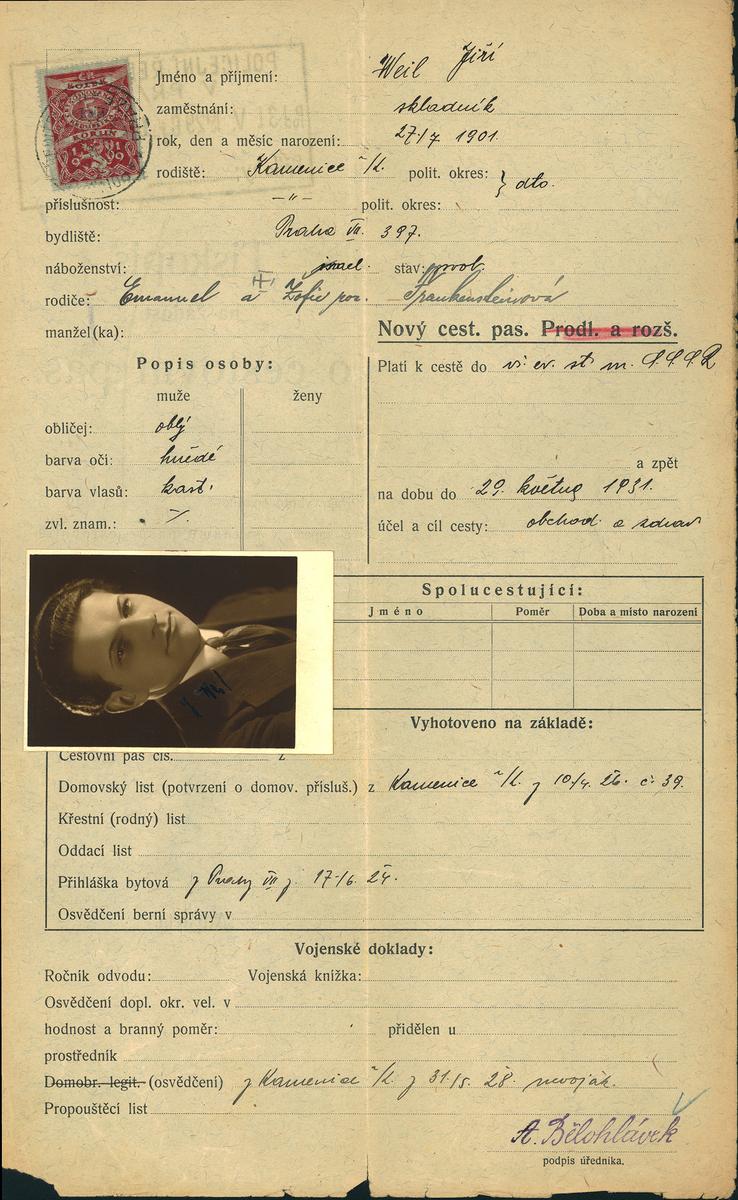 POLICEJNÍ ŘE
KOLEK
5
KORUN
19 19
Jméno a příjmení: Weil Jiří
zaměstnání: skladník
rok, den a měsíc narození: 27/7 1901.
rodiště: Kamenice n/L. polit. okres: } dto.
příslušnost: —"— polit. okres:
bydliště: Praha VII. 397.
náboženství: israel. stav: svob.
rodiče: Emanuel a Žofie roz. Frankensteinová
manžel(ka):
Nový cest. pas. Prodl. a rozš.
Popis osoby:
muže ženy
obličej: oblý
barva očí: hnědé
barva vlasů: kašt.
zvl. znam.: ·/.
Platí k cestě do vš. ev. st. m. S.S.S.R
a zpět
na dobu do 29. května 1931.
účel a cíl cesty: obchod. a zdrav
Spolucestující:
Jméno Poměr Doba a místo narození
Vyhotoveno na základě:
Cestovní pas čís. z
Domovský list (potvrzení o domov. přísluš.) z Kamenice n/L. z 10/4. 26. č. 39.
Křestní (rodný) list
Oddací list
Přihláška bytová z Prahy VII z 17/6. 24.
Osvědčení berní správy v
Vojenské doklady:
Ročník odvodu: Vojenská knížka:
Osvědčení dopl. okr. vel. v
hodnost a branný poměr: přidělen u
prostředník
Domobr. legit. (osvědčení) z Kamenice n/L. z 31/5. 28. nevoják.
Propouštěcí list
A. Bělohlávek
podpis úředníka.